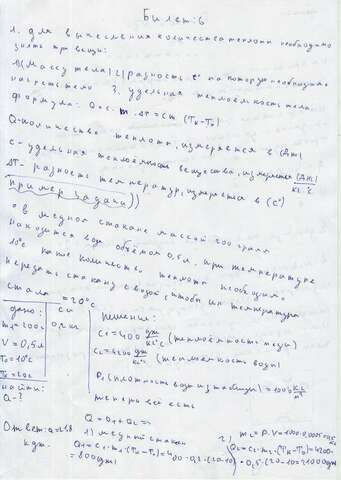 Билет: 6
1. для вычисления количества теплоты необходимо
знать три вещи:
1) массу тела 2) разность t° на которую необходимо
нагреть тело 3. удельная теплоёмкость тела.
формула: Q = c · m · ΔT = cm (Tк-T0)
Q-количество теплоты, измеряется в (Дж)
c - удельная теплоёмкость вещества, измеряется (Дж)
кг·°C
ΔT - разность температур, измеряется в (C°)
Пример задачи))
= в медном стакане массой 200 грамм
находится вода объёмом 0,5л, при температуре
10°C какое количество теплоты необходимо
передать стакану с водой, чтобы их температура
стала = 20°C
дано:
m1 = 200г
V = 0,5л
T0 = 10°C
Tк = 20°C
найти:
Q-?
си
0,2кг
решение:
C1 = 400 дж/кг°C (теплоёмкость меди)
C2 = 4200 дж/кг°C (теплоёмкость воды)
P, (плотность воды из таблицы) = 1000 кг/м³
теперь всё есть
Q = Q1 + Q2 =>
1) медный стакан
Q1 = C1 · m1 · (Tк-T0) = 400 · 0,2 · (20-10)
= 800дж)
2) m2 = P · V = 1000 · 0,0005 = 0,5
Q2 = C2 · m2 · (Tк-T0) = 4200 ·
· 0,5 · (20-10) = 21000 дж
Ответ: Q = 21,8
кдж.